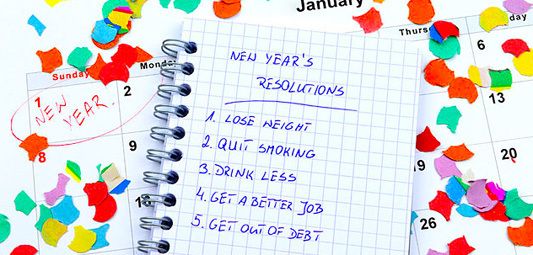 January
Sunday
Monda
Thurs
day
1
2
6
NEW
YEAR.
8
9
13
18
19
20
26
NEW YEAR'S
RESOLUTIONS
1. LOSE WEIGHT
2. QUIT SMOKING
3. DRINK LESS
4. GET A BETTER JOB
5. GET OUT OF DEBT